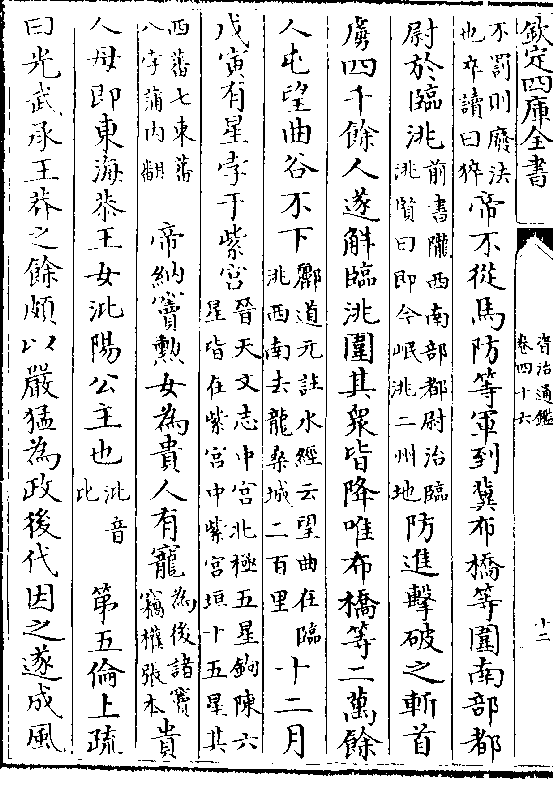 欽定四庫全書
資治通鑑
卷四十六
十二
不罰則廢法
也卒讀曰猝
帝不從馬防等軍到冀布橋等圍南部都
尉於臨洮
前書隴西南部都尉治臨
洮賢曰即今岷洮二州地
防進擊破之斬首
虜四千餘人遂解臨洮圍其衆皆降唯布橋等二萬餘
人屯望曲谷不下
酈道元註水經云望曲在臨
洮西南去龍桑城二百里
十二月
戊寅有星孛于紫宮
晉天文志中宮北極五星鉤陳六
星皆在紫宮中紫宮垣十五星其
西蕃七東蕃
八孛蒲内翻
帝納竇勲女為貴人有寵
為後諸竇
竊權張本
貴
人母即東海恭王女沘陽公主也
沘音
比
第五倫上疏
曰光武承王莽之餘頗以嚴猛為政後代因之遂成風